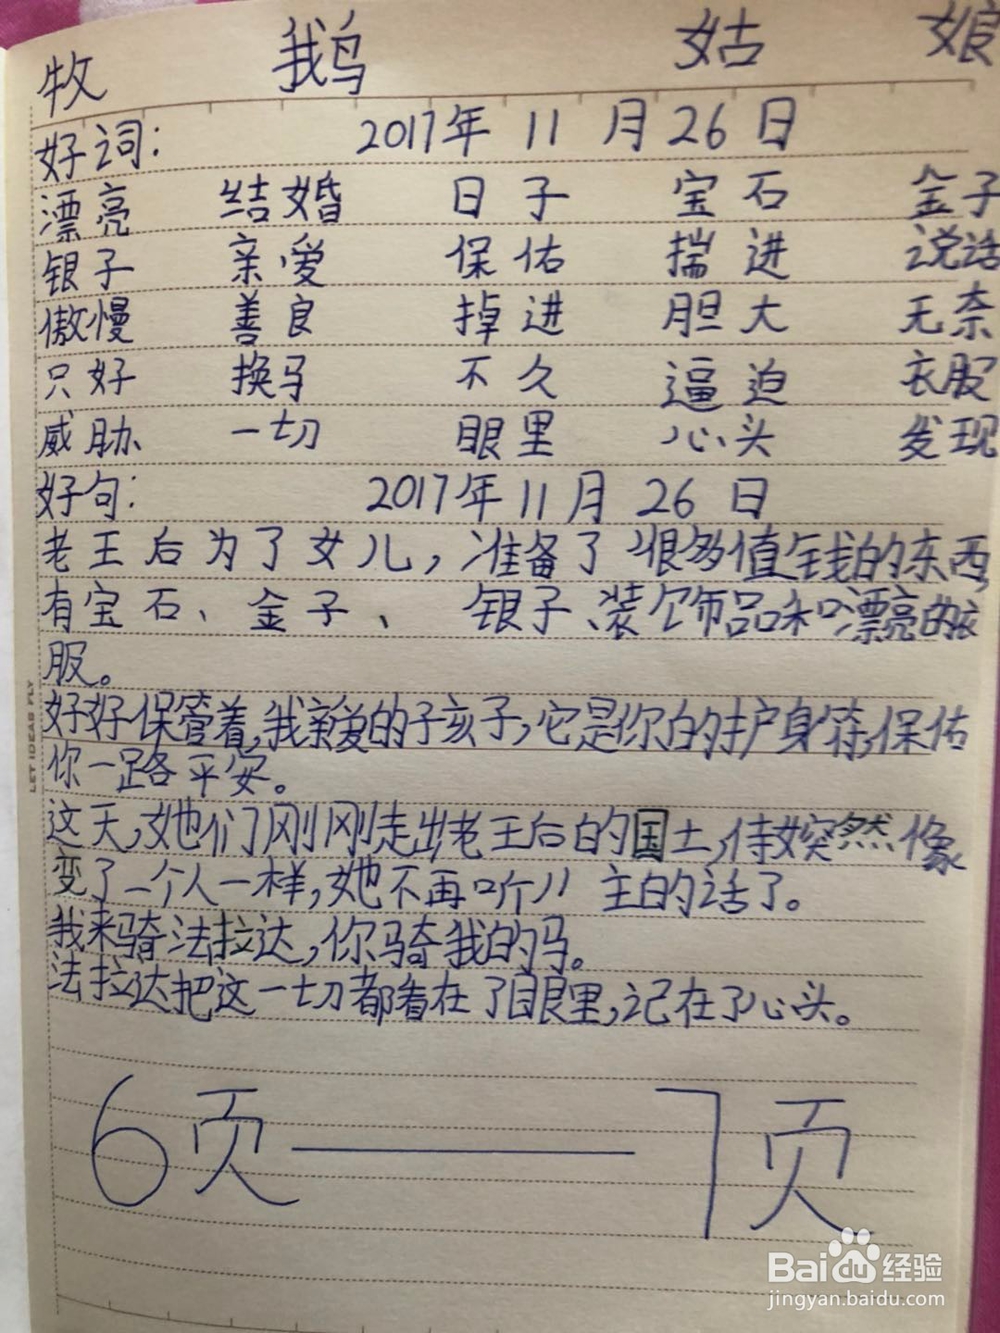 牧 鹅 姑 娘
好词： 2017年 11 月 26 日
漂亮 结婚 日子 宝石 金子
银子 亲爱 保佑 揣进 说话
傲慢 善良 掉进 胆大 无奈
只好 换马 不久 逼迫 衣服
威胁 一切 眼里 心头 发现
好句： 2017年 11月 26 日
老王后为了女儿，准备了很多值钱的东西，
有宝石、金子、 银子、装饰品和漂亮的衣
服。
好好保管着，我亲爱的孩子，它是你的护身符，保佑
你一路平安。
这天，她们刚刚走出老王后的国土，侍女突然像
变了一个人一样，她不再听从主的话了。
我来骑法拉达，你骑我的马。
法拉达把这一切都看在了眼里，记在了心头。
6页——7页
LET IDEAS FLY
Baidu经验
jingyan.baidu.com